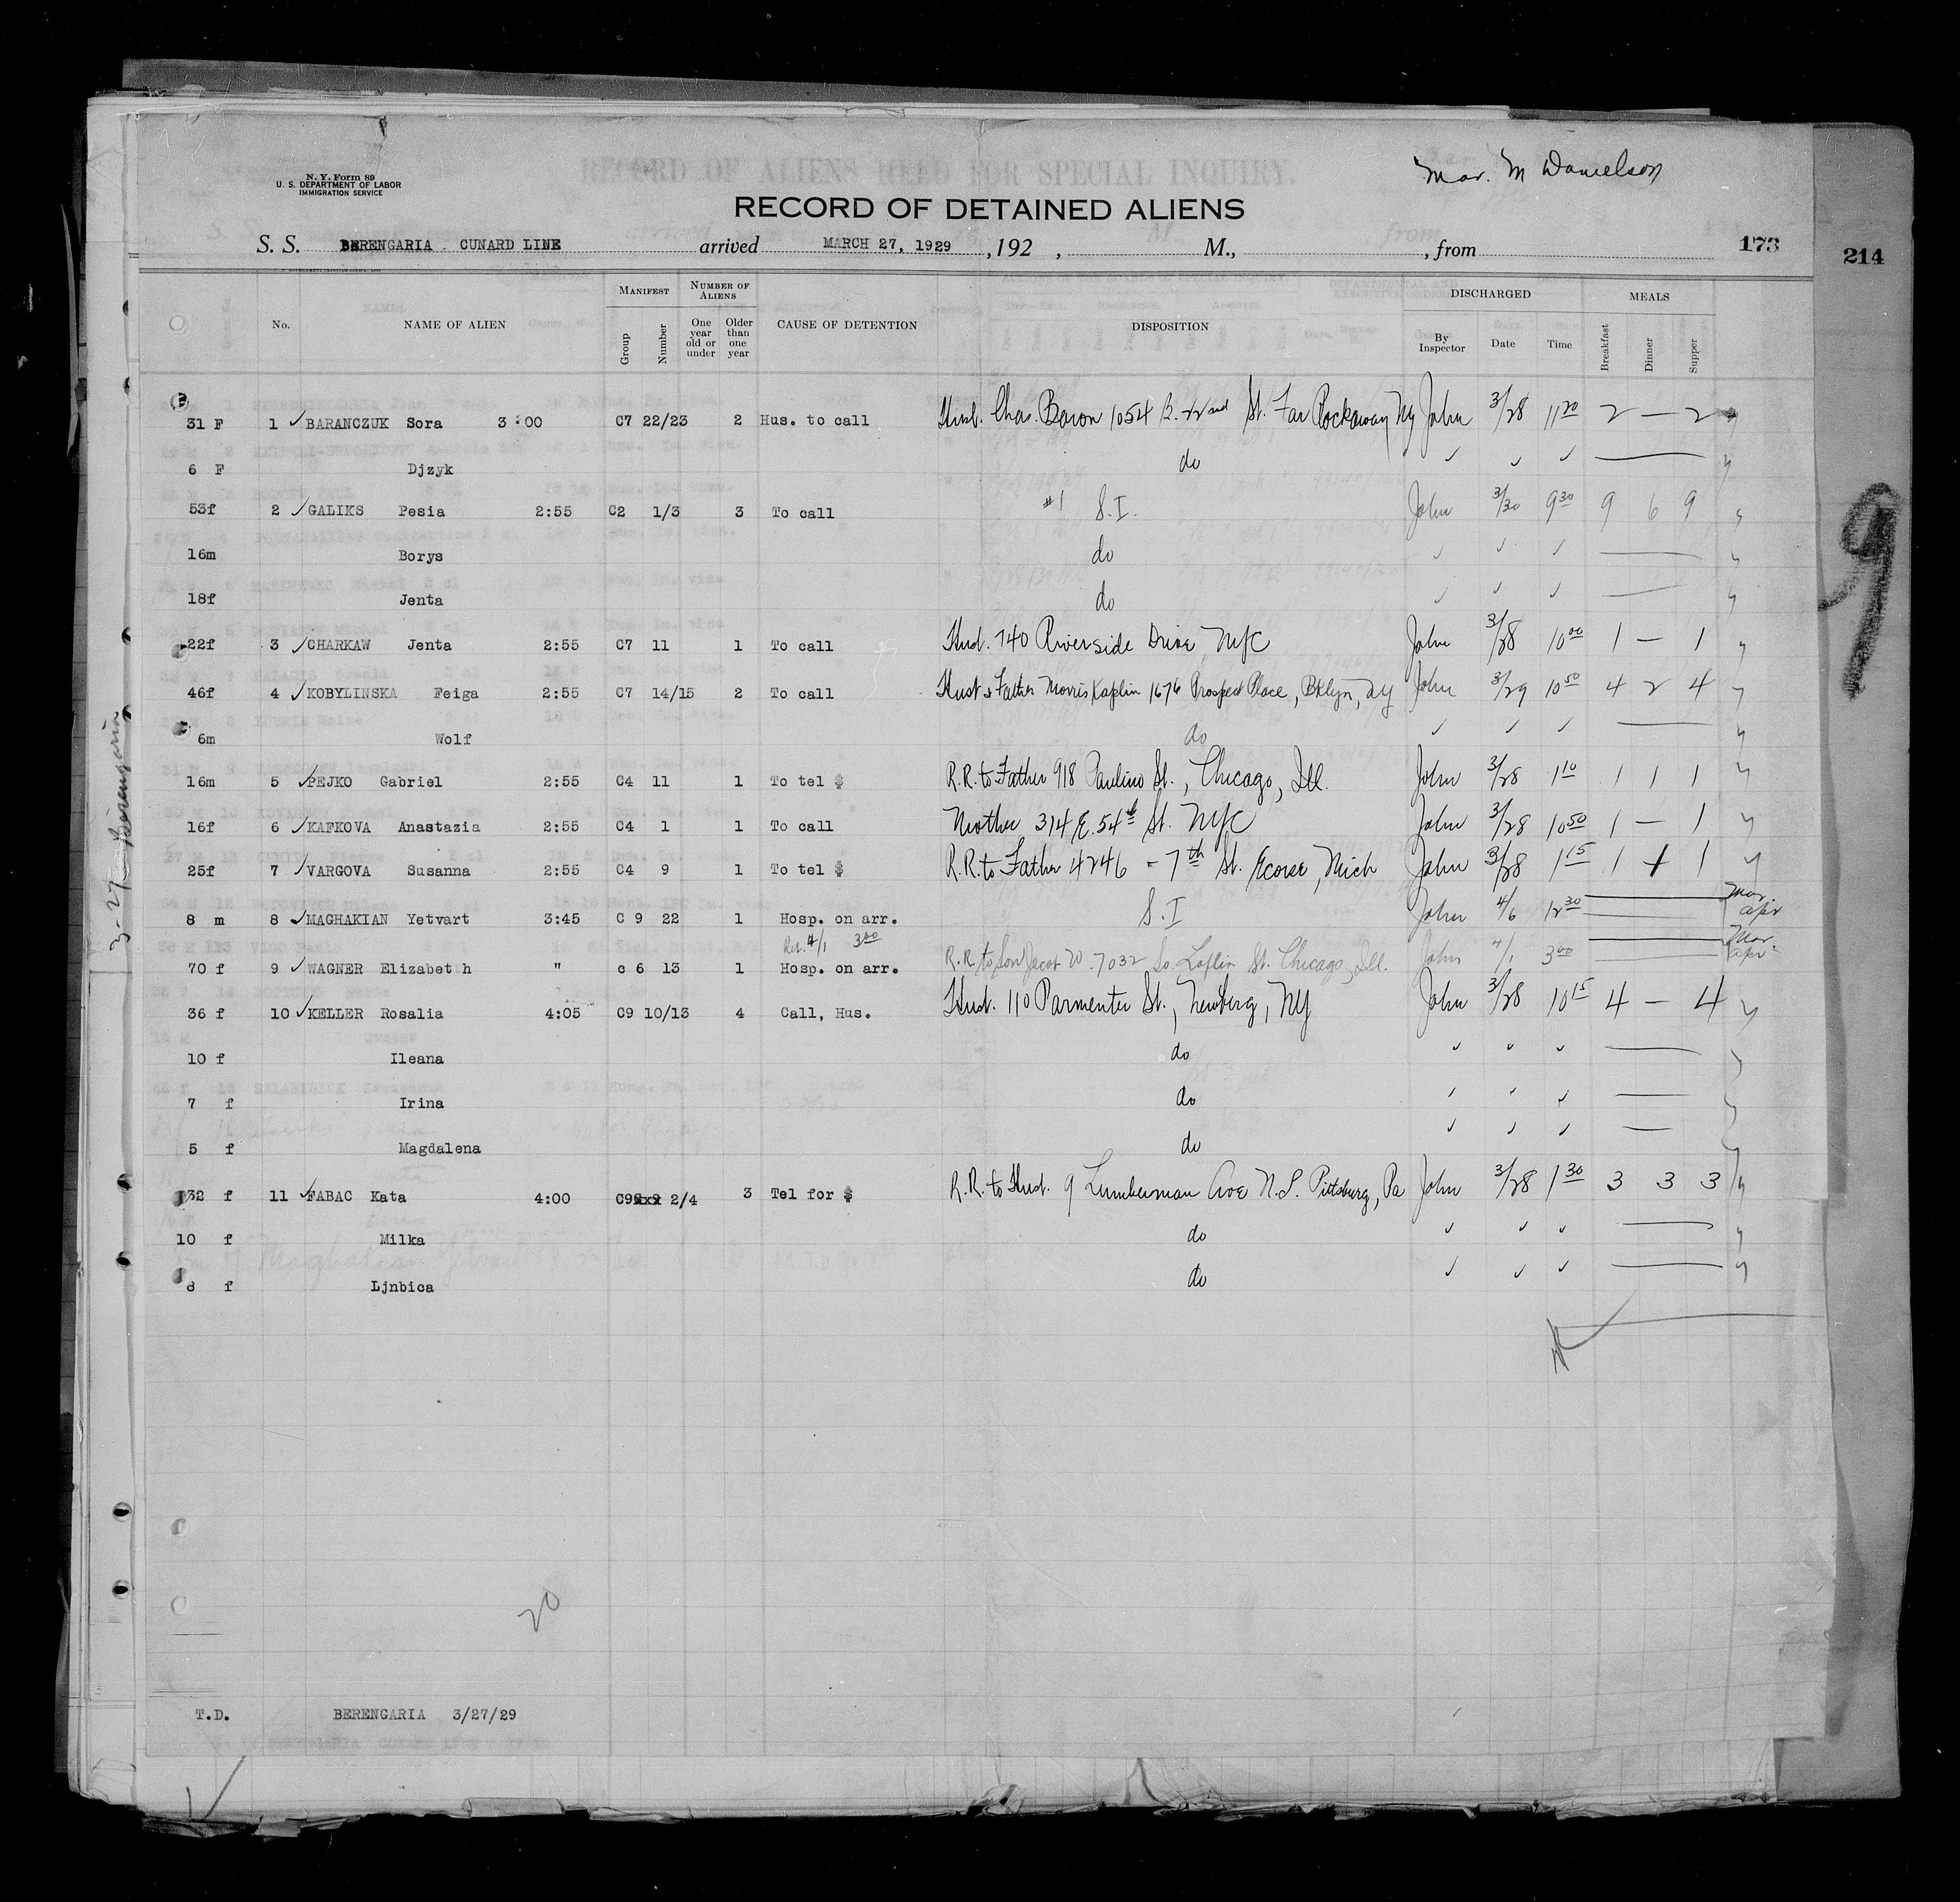 N. Y. Form 89
U. S. DEPARTMENT OF LABOR
IMMIGRATION SERVICE
Mar. M Danielson
RECORD OF DETAINED ALIENS
S. S. BERENGARIA CUNARD LINE arrived MARCH 27, 1929, 192 , M., , from 173
214
No. NAME OF ALIEN MANIFEST Group Number NUMBER OF ALIENS One year old or under Older than one year CAUSE OF DETENTION DISPOSITION DISCHARGED By Inspector Date Time MEALS Breakfast Dinner Supper
31 F 1 ✓ BARANCZUK Sora 3:00 C7 22/23 2 Hus. to call Husb. Chas. Baron 1054 B. 22nd St. Far Rockaway NY John 3/28 11 20 2 — 2
6 F Djzyk do ✓ ✓ ✓
53f 2 ✓ GALIKS Pesia 2:55 C2 1/3 3 To call #1 S.I. John 3/30 9 30 9 6 9
16m Borys do ✓ ✓ ✓
18f Jenta do ✓ ✓ ✓
22f 3 ✓ CHARKAW Jenta 2:55 C7 11 1 To call Husb. 740 Riverside Drive, NYC John 3/28 10 00 1 — 1
46f 4 ✓ KOBYLINSKA Feiga 2:55 C7 14/15 2 To call Husb & Father Morris Kaplin 1676 Prospect Place, Bklyn, NY John 3/29 10 50 4 2 4
6m Wolf do ✓ ✓ ✓
16m 5 ✓ PEJKO Gabriel 2:55 C4 11 1 To tel $ R.R. to Father 918 Paulino St., Chicago, Ill. John 3/28 1 10 1 1 1
16f 6 ✓ KAFKOVA Anastazia 2:55 C4 1 1 To call Mother 314 E. 54th St. NYC John 3/28 10 50 1 — 1
25f 7 ✓ VARGOVA Susanna 2:55 C4 9 1 To tel $ R.R. to Father 4246 - 7th St. Ecorse, Mich John 3/28 1 15 1 1 1
8 m 8 ✓ MAGHAKIAN Yetvart 3:45 C 9 22 1 Hosp. on arr. S.I John 4/6 12 30 Mar. Apr
Rel. 4/1 3 00
70 f 9 ✓ WAGNER Elizabeth " c 6 13 1 Hosp. on arr. R.R. to Son Jacob W. 7032 So. Loflin St. Chicago, Ill. John 4/1 3 00 Mar. Apr
36 f 10 ✓ KELLER Rosalia 4:05 C9 10/13 4 Call, Hus. Husb. 110 Parmenter St., Newberg, NY John 3/28 10 15 4 — 4
10 f Ileana do ✓ ✓ ✓
7 f Irina do ✓ ✓ ✓
5 f Magdalena do ✓ ✓ ✓
32 f 11 ✓ FABAC Kata 4:00 C9 2/4 3 Tel for $ R.R. to Husb. 9 Lumberman Ave N.S. Pittsburg, Pa John 3/28 1 30 3 3 3
10 f Milka do ✓ ✓ ✓
8 f Ljnbica do ✓ ✓ ✓
20
T.D. BERENGARIA 3/27/29
3-27 Berengaria
9